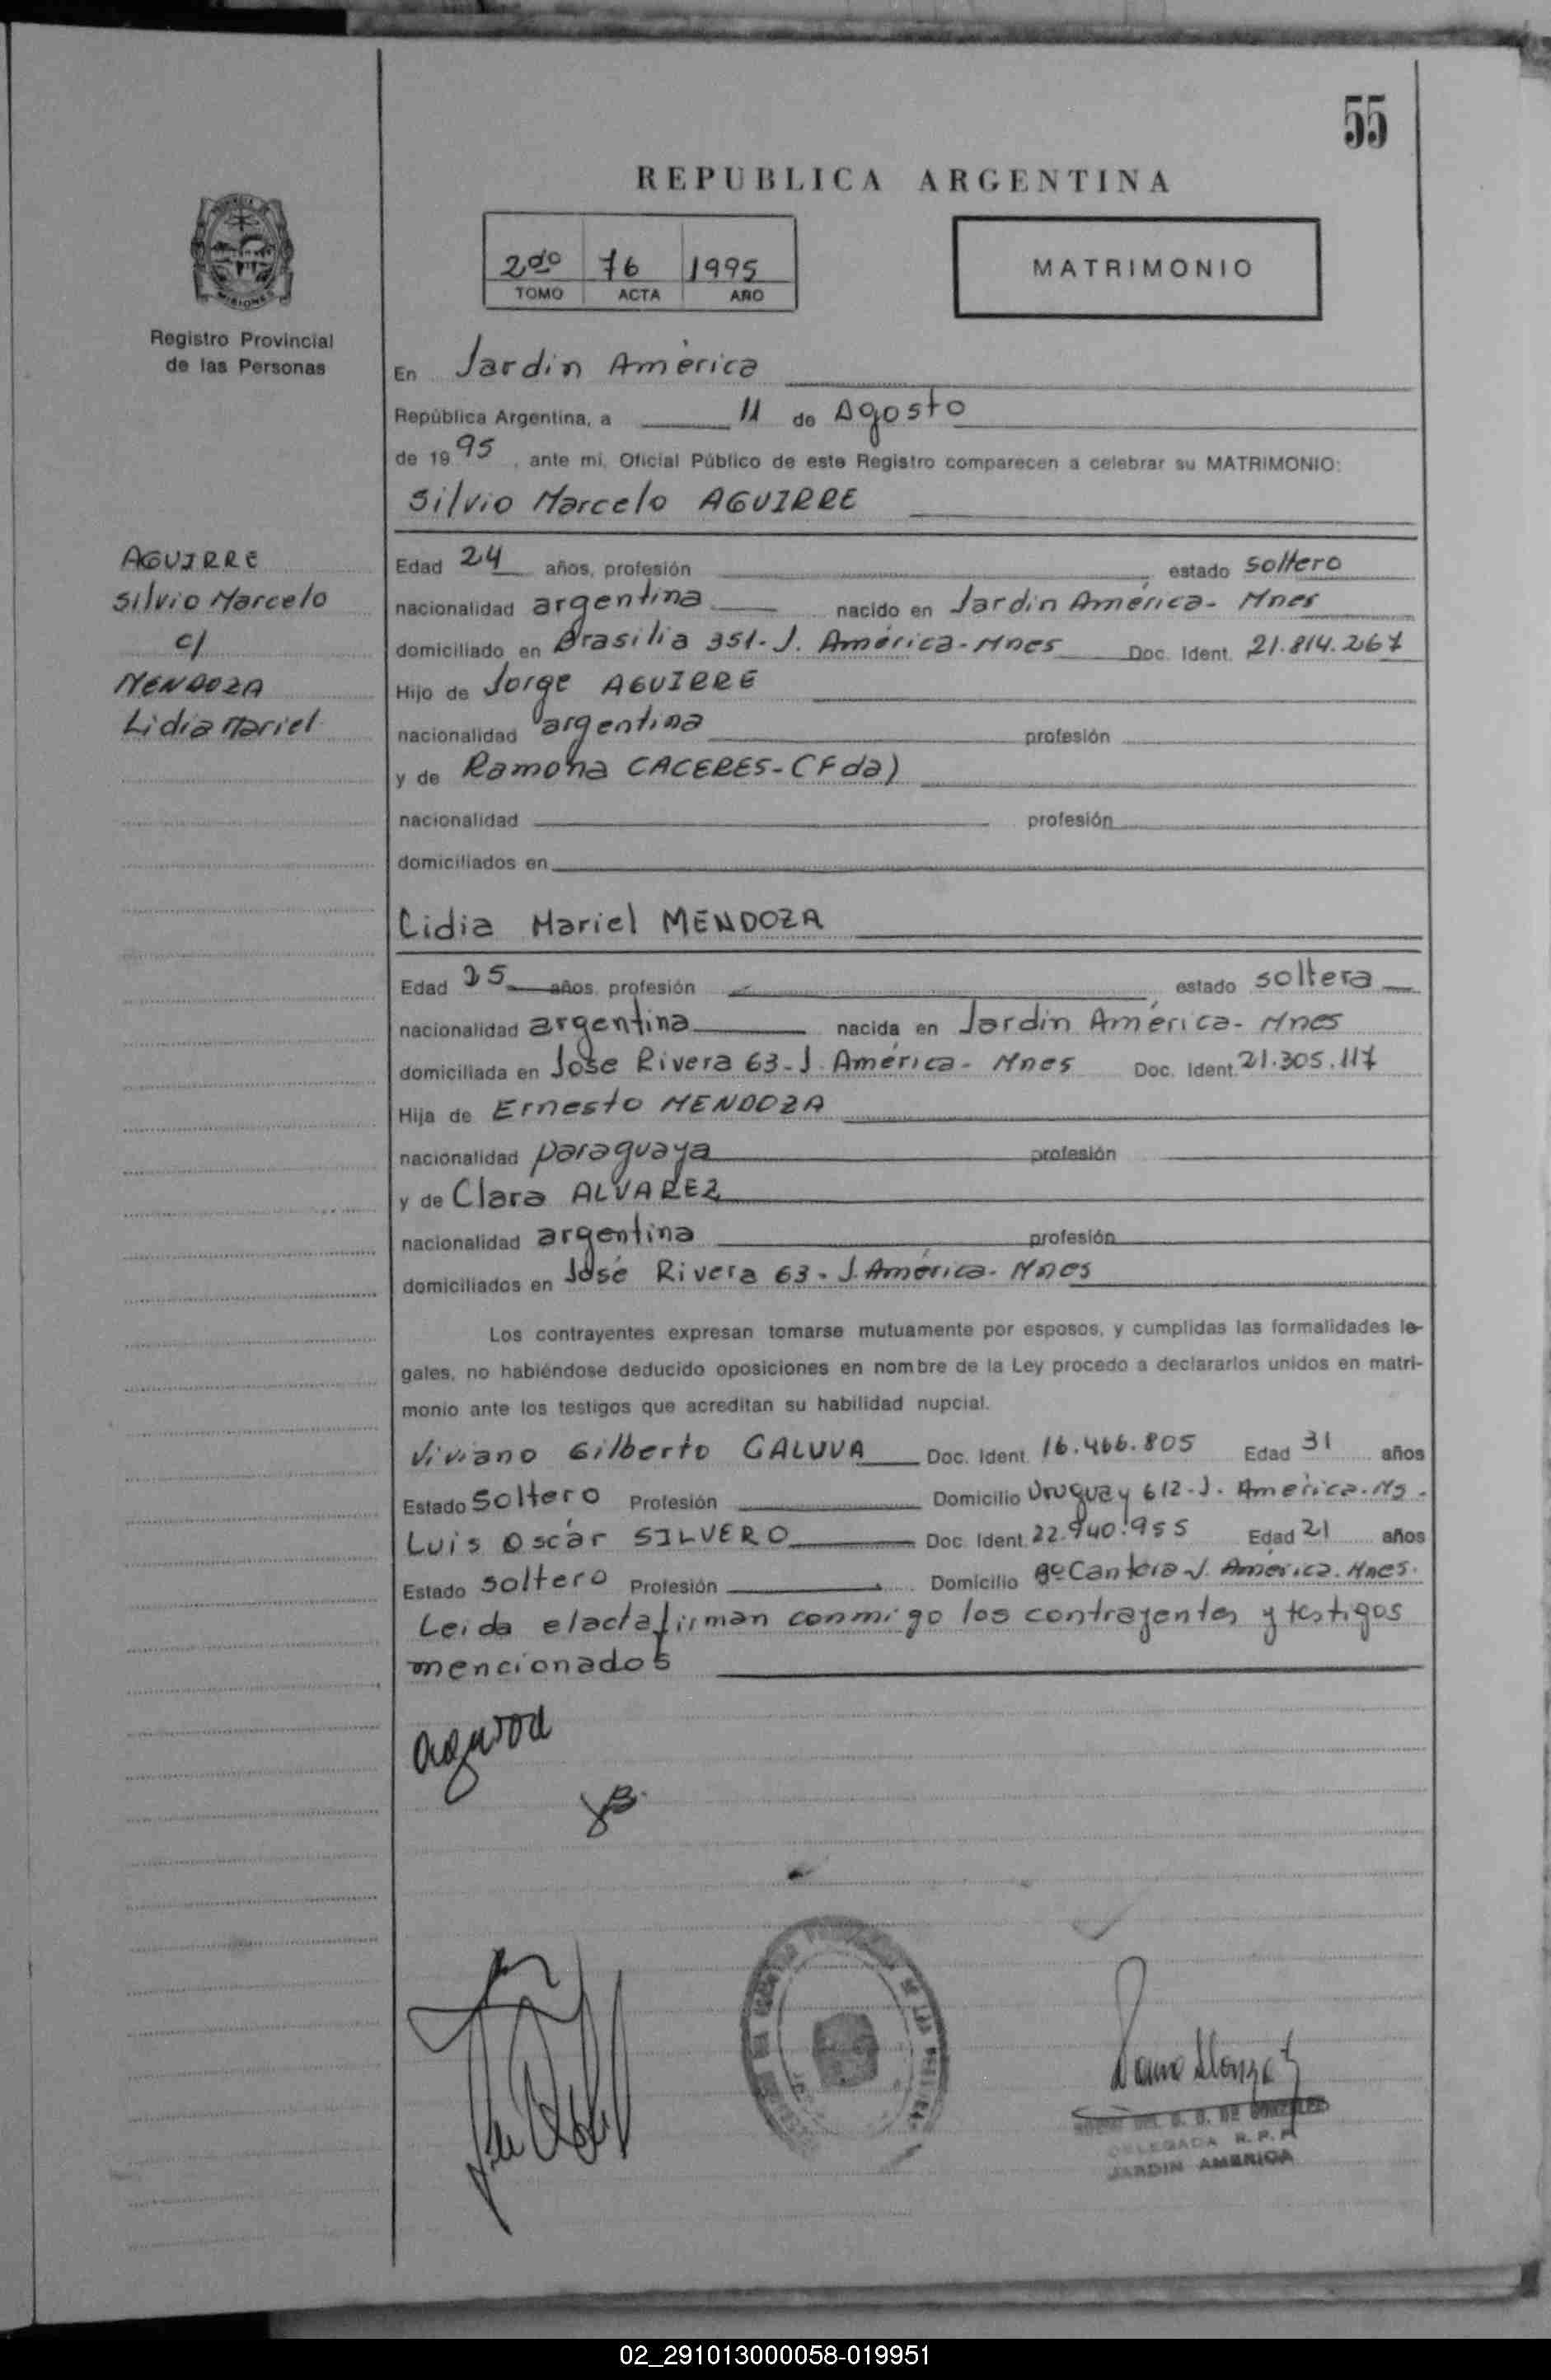 55
REPUBLICA ARGENTINA
2do 76 1995
TOMO ACTA AÑO
MATRIMONIO
Registro Provincial
de las Personas
En Jardin América
República Argentina, a 11 de Agosto
de 1995, ante mi, Oficial Público de este Registro comparecen a celebrar su MATRIMONIO:
Silvio Marcelo AGUIRRE
AGUIRRE
Silvio Marcelo
c/
MENDOZA
Lidia Mariel
Edad 24 años, profesión estado soltero
nacionalidad argentina nacido en Jardin América - Mnes
domiciliado en Brasilia 351 - J. América - Mnes Doc. Ident. 21.814.267
Hijo de Jorge AGUIRRE
nacionalidad argentina profesión
y de Ramona CACERES - (Fda)
nacionalidad profesión
domiciliados en
Lidia Mariel MENDOZA
Edad 25 años, profesión estado soltera
nacionalidad argentina nacida en Jardin América - Mnes
domiciliada en José Rivera 63 - J. América - Mnes Doc. Ident. 21.305.117
Hija de Ernesto MENDOZA
nacionalidad paraguaya profesión
y de Clara ALVAREZ
nacionalidad argentina profesión
domiciliados en José Rivera 63 - J. América - Mnes
Los contrayentes expresan tomarse mutuamente por esposos, y cumplidas las formalidades le-
gales, no habiéndose deducido oposiciones en nombre de la Ley procedo a declararlos unidos en matri-
monio ante los testigos que acreditan su habilidad nupcial.
Viviano Gilberto GALUVA Doc. Ident. 16.466.805 Edad 31 años
Estado Soltero Profesión Domicilio Uruguay 612 - J. América - Ms.
Luis Oscar SILVERO Doc. Ident. 22.940.955 Edad 21 años
Estado soltero Profesión Domicilio Bº Cantera J. América. Mnes.
Leida el acta firman conmigo los contrayentes y testigos
mencionados
DE GONZALEZ
DELEGADA R.P.P.
JARDIN AMERICA
02_291013000058-019951